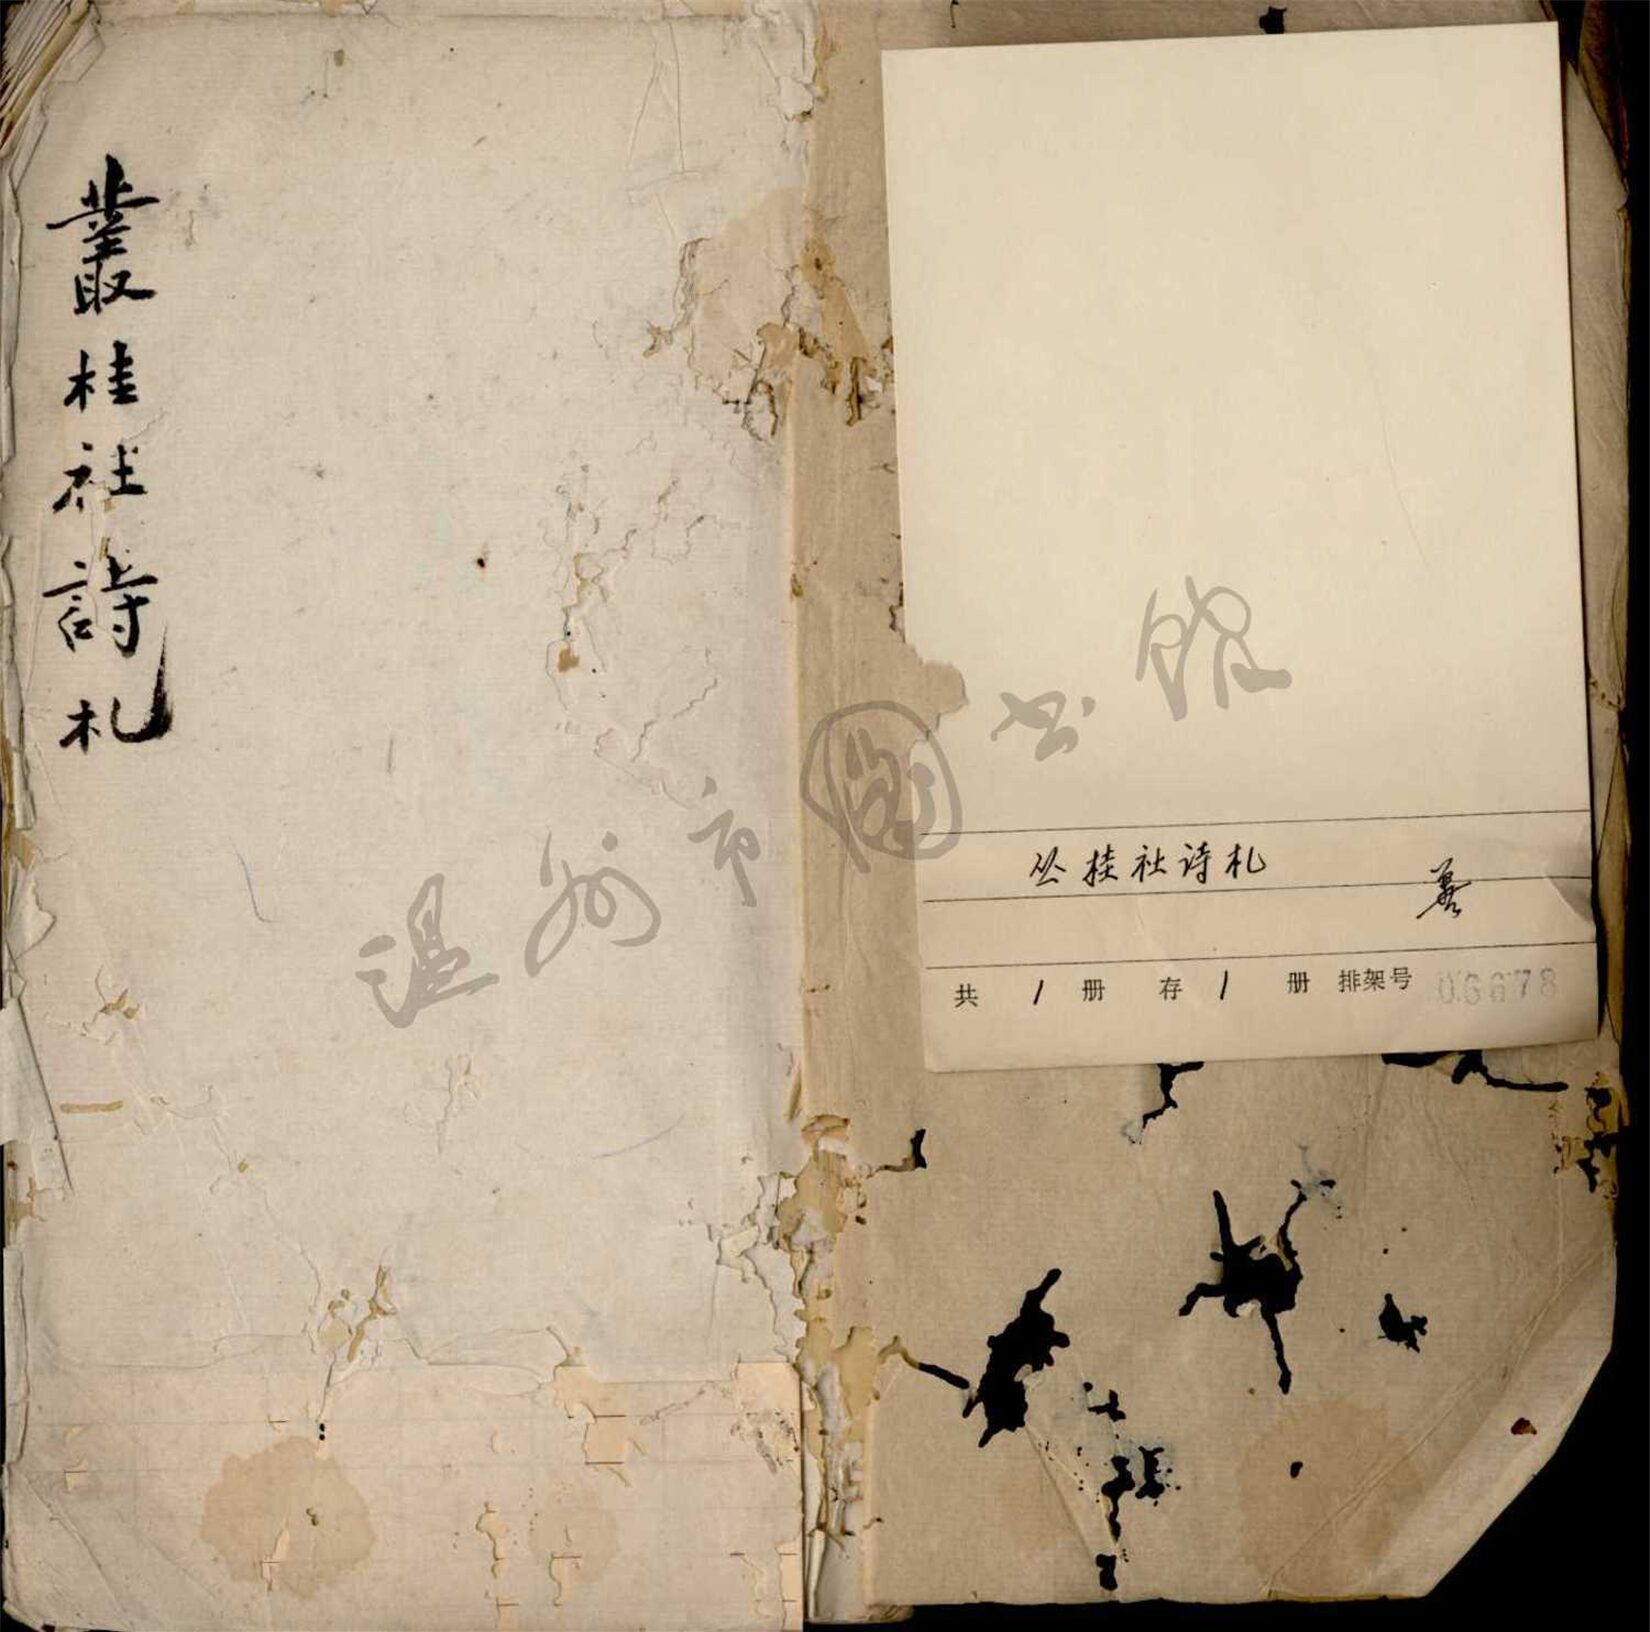 叢桂社詩札
温州市圖书馆
丛桂社诗札
善
共 1 册 存 1 册 排架号 006678